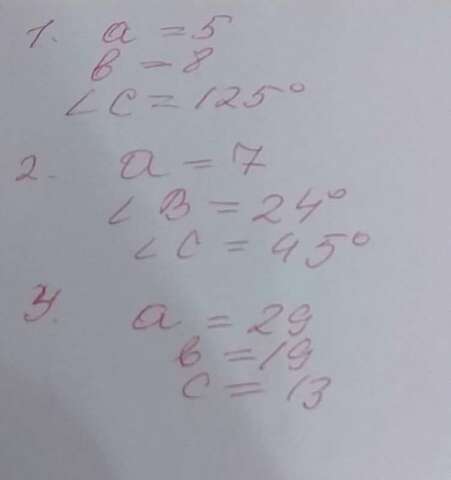 1. a = 5
b = 8
∠C = 125°
2. a = 7
∠B = 24°
∠C = 45°
3. a = 29
b = 19
c = 13